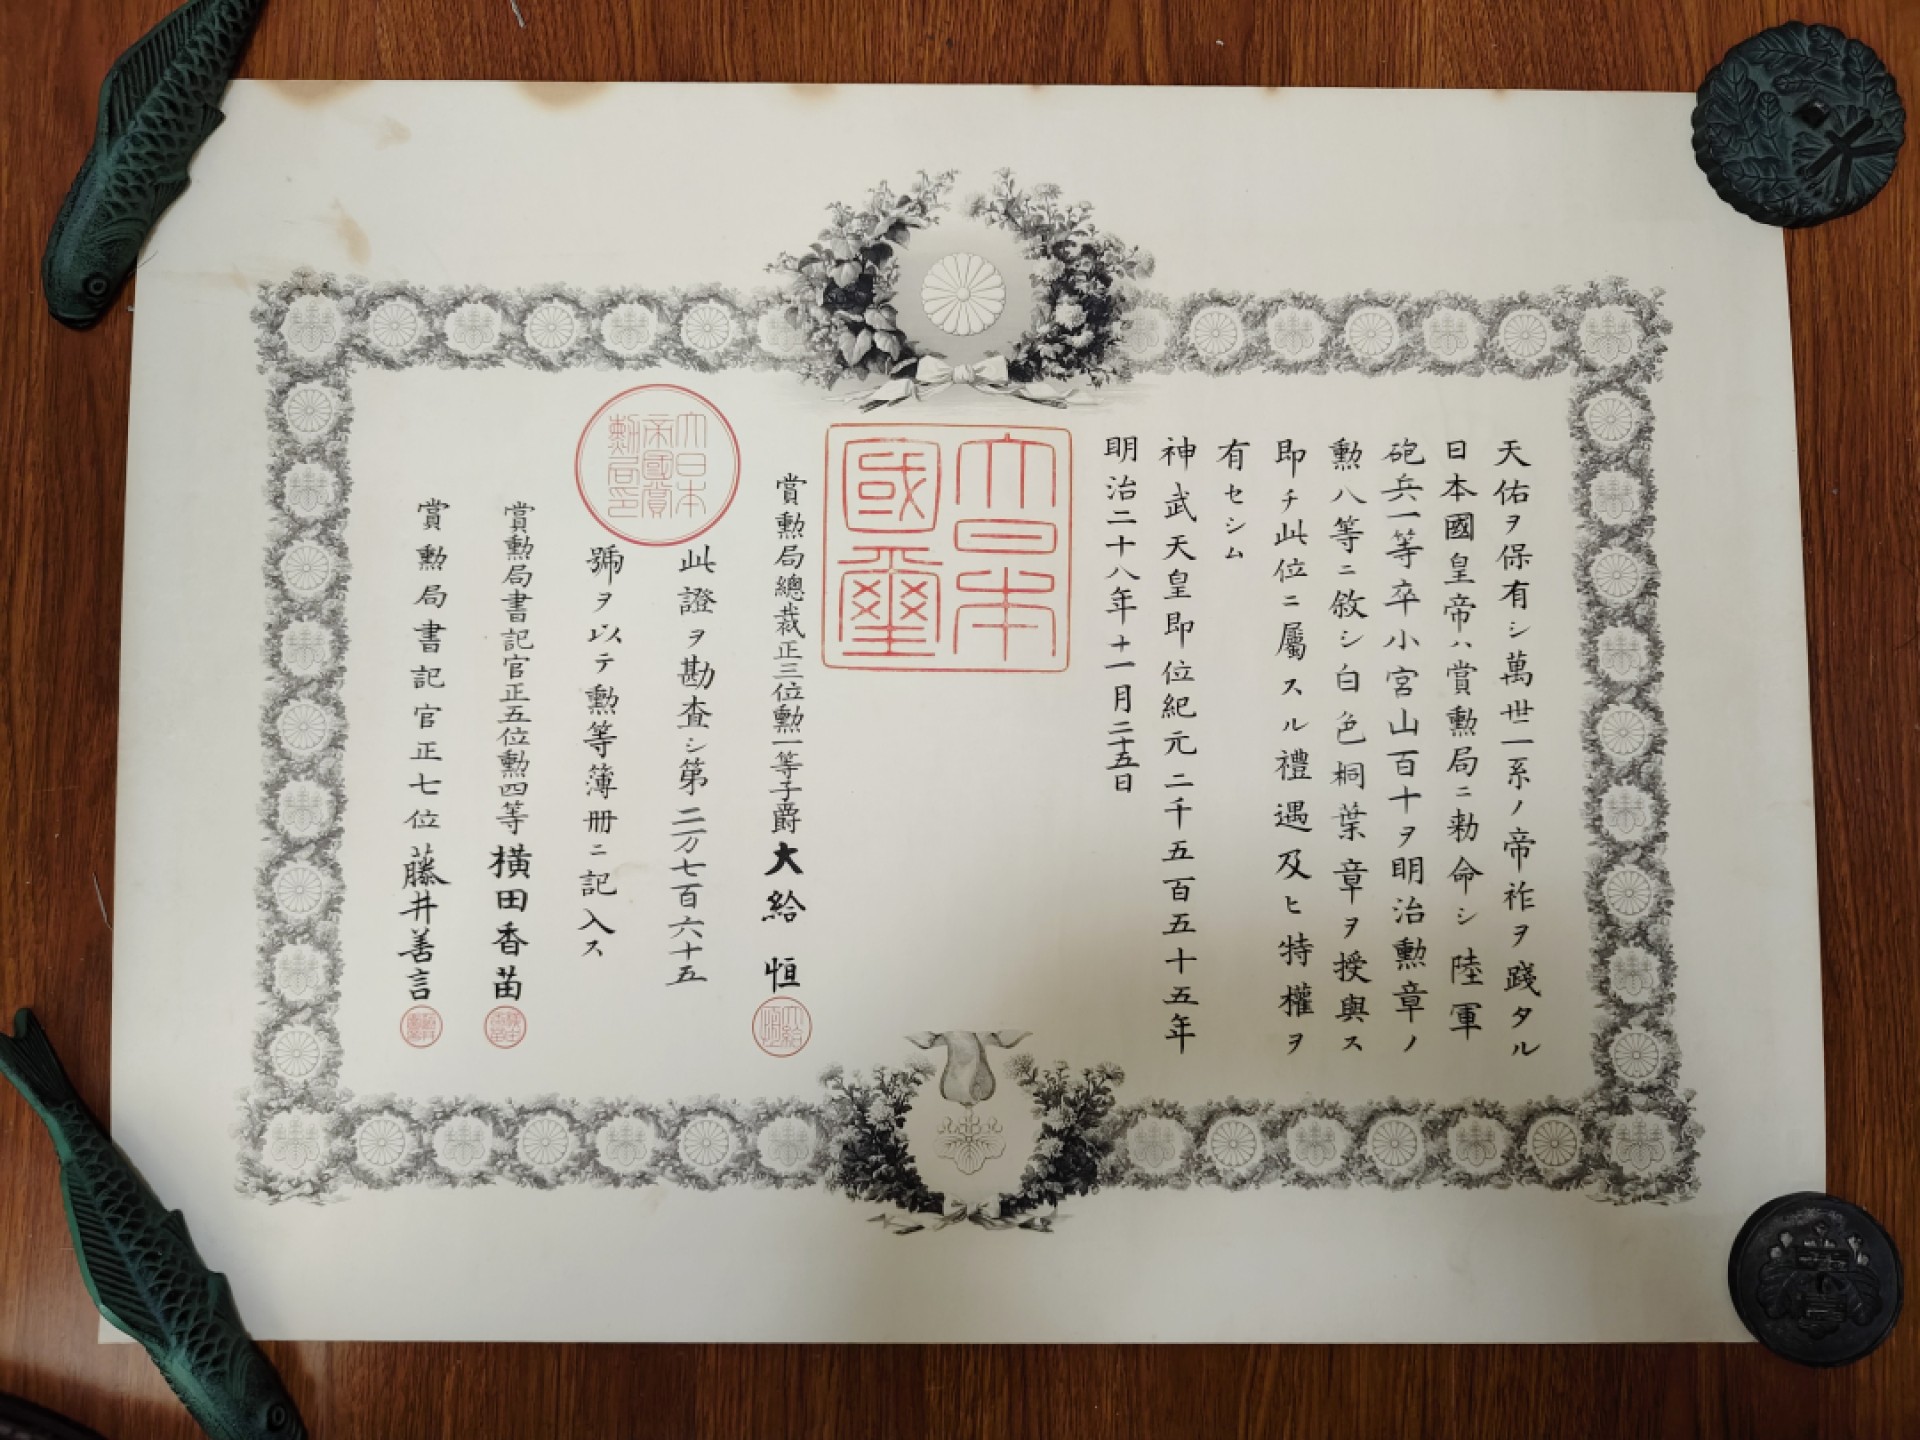 天佑ヲ保有シ萬世一系ノ帝祚ヲ踐タル
日本國皇帝ハ賞勲局ニ勅命シ陸軍
砲兵一等卒小宮山百十ヲ明治勲章ノ
勲八等ニ敘シ白色桐葉章ヲ授與ス
即チ此位ニ屬スル禮遇及ヒ特權ヲ
有セシム
神武天皇即位紀元二千五百五十五年
明治二十八年十一月二十五日
大日本國璽
賞勲局總裁正三位勲一等子爵大給恒
大給恒
大日本帝國賞勲局印
此證ヲ勘査シ第二万七百六十五
號ヲ以テ勲等簿冊ニ記入ス
賞勲局書記官正五位勲四等横田香苗
賞勲局書記官正七位藤井善言